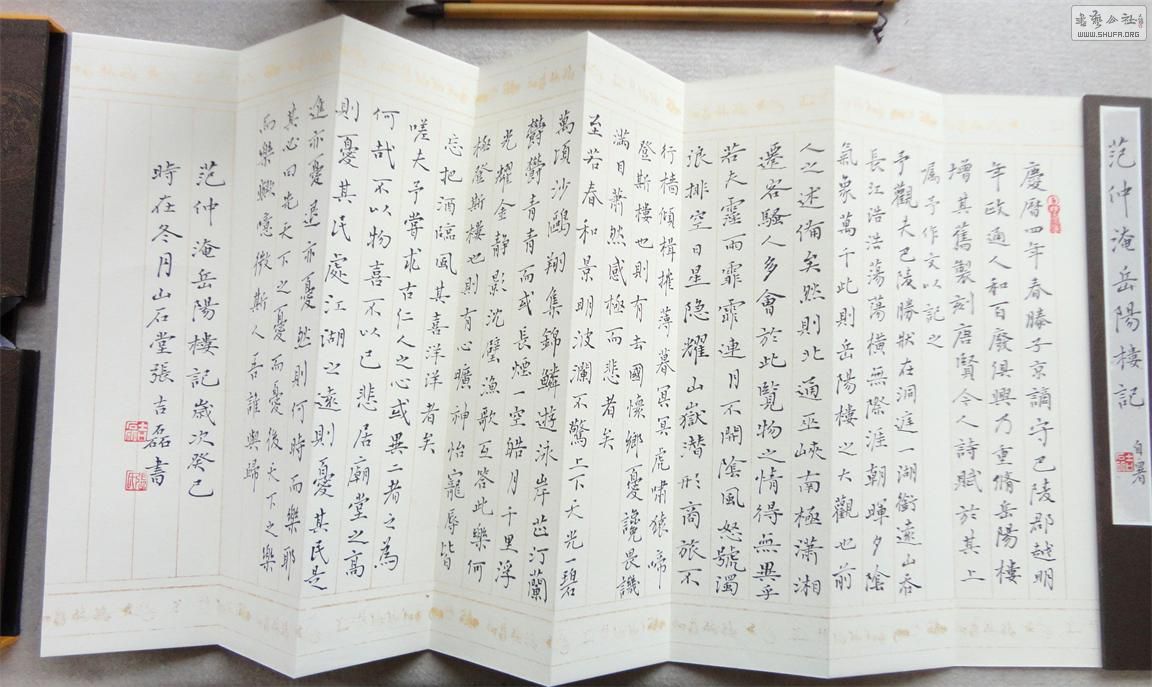 范仲淹岳陽樓記
自署
慶曆四年春滕子京謫守巴陵郡越明
年政通人和百廢俱興乃重脩岳陽樓
增其舊製刻唐賢今人詩賦於其上
屬予作文以記之
予觀夫巴陵勝狀在洞庭一湖銜遠山吞
長江浩浩蕩蕩橫無際涯朝暉夕陰
氣象萬千此則岳陽樓之大觀也前
人之述備矣然則北通巫峽南極瀟湘
遷客騷人多會於此覽物之情得無異乎
若夫霪雨霏霏連月不開陰風怒號濁
浪排空日星隐耀山嶽潛形商旅不
行檣傾楫摧薄暮冥冥虎嘯猿啼
登斯樓也則有去國懷鄉憂讒畏譏
滿目蕭然感極而悲者矣
至若春和景明波瀾不驚上下天光一碧
萬頃沙鷗翔集錦鱗遊泳岸芷汀蘭
鬱鬱青青而或長煙一空皓月千里浮
光耀金靜影沈璧漁歌互答此樂何
極登斯樓也則有心曠神怡寵辱皆
忘把酒臨風其喜洋洋者矣
嗟夫予嘗求古仁人之心或異二者之為
何哉不以物喜不以己悲居廟堂之高
則憂其民處江湖之遠則憂其民是
進亦憂退亦憂然則何時而樂耶
其必曰先天下之憂而憂後天下之樂
而樂歟噫微斯人吾誰與歸
范仲淹岳陽樓記歲次癸巳
時在冬月山石堂張吉磊書
書藝公社
WWW.SHUFA.ORG